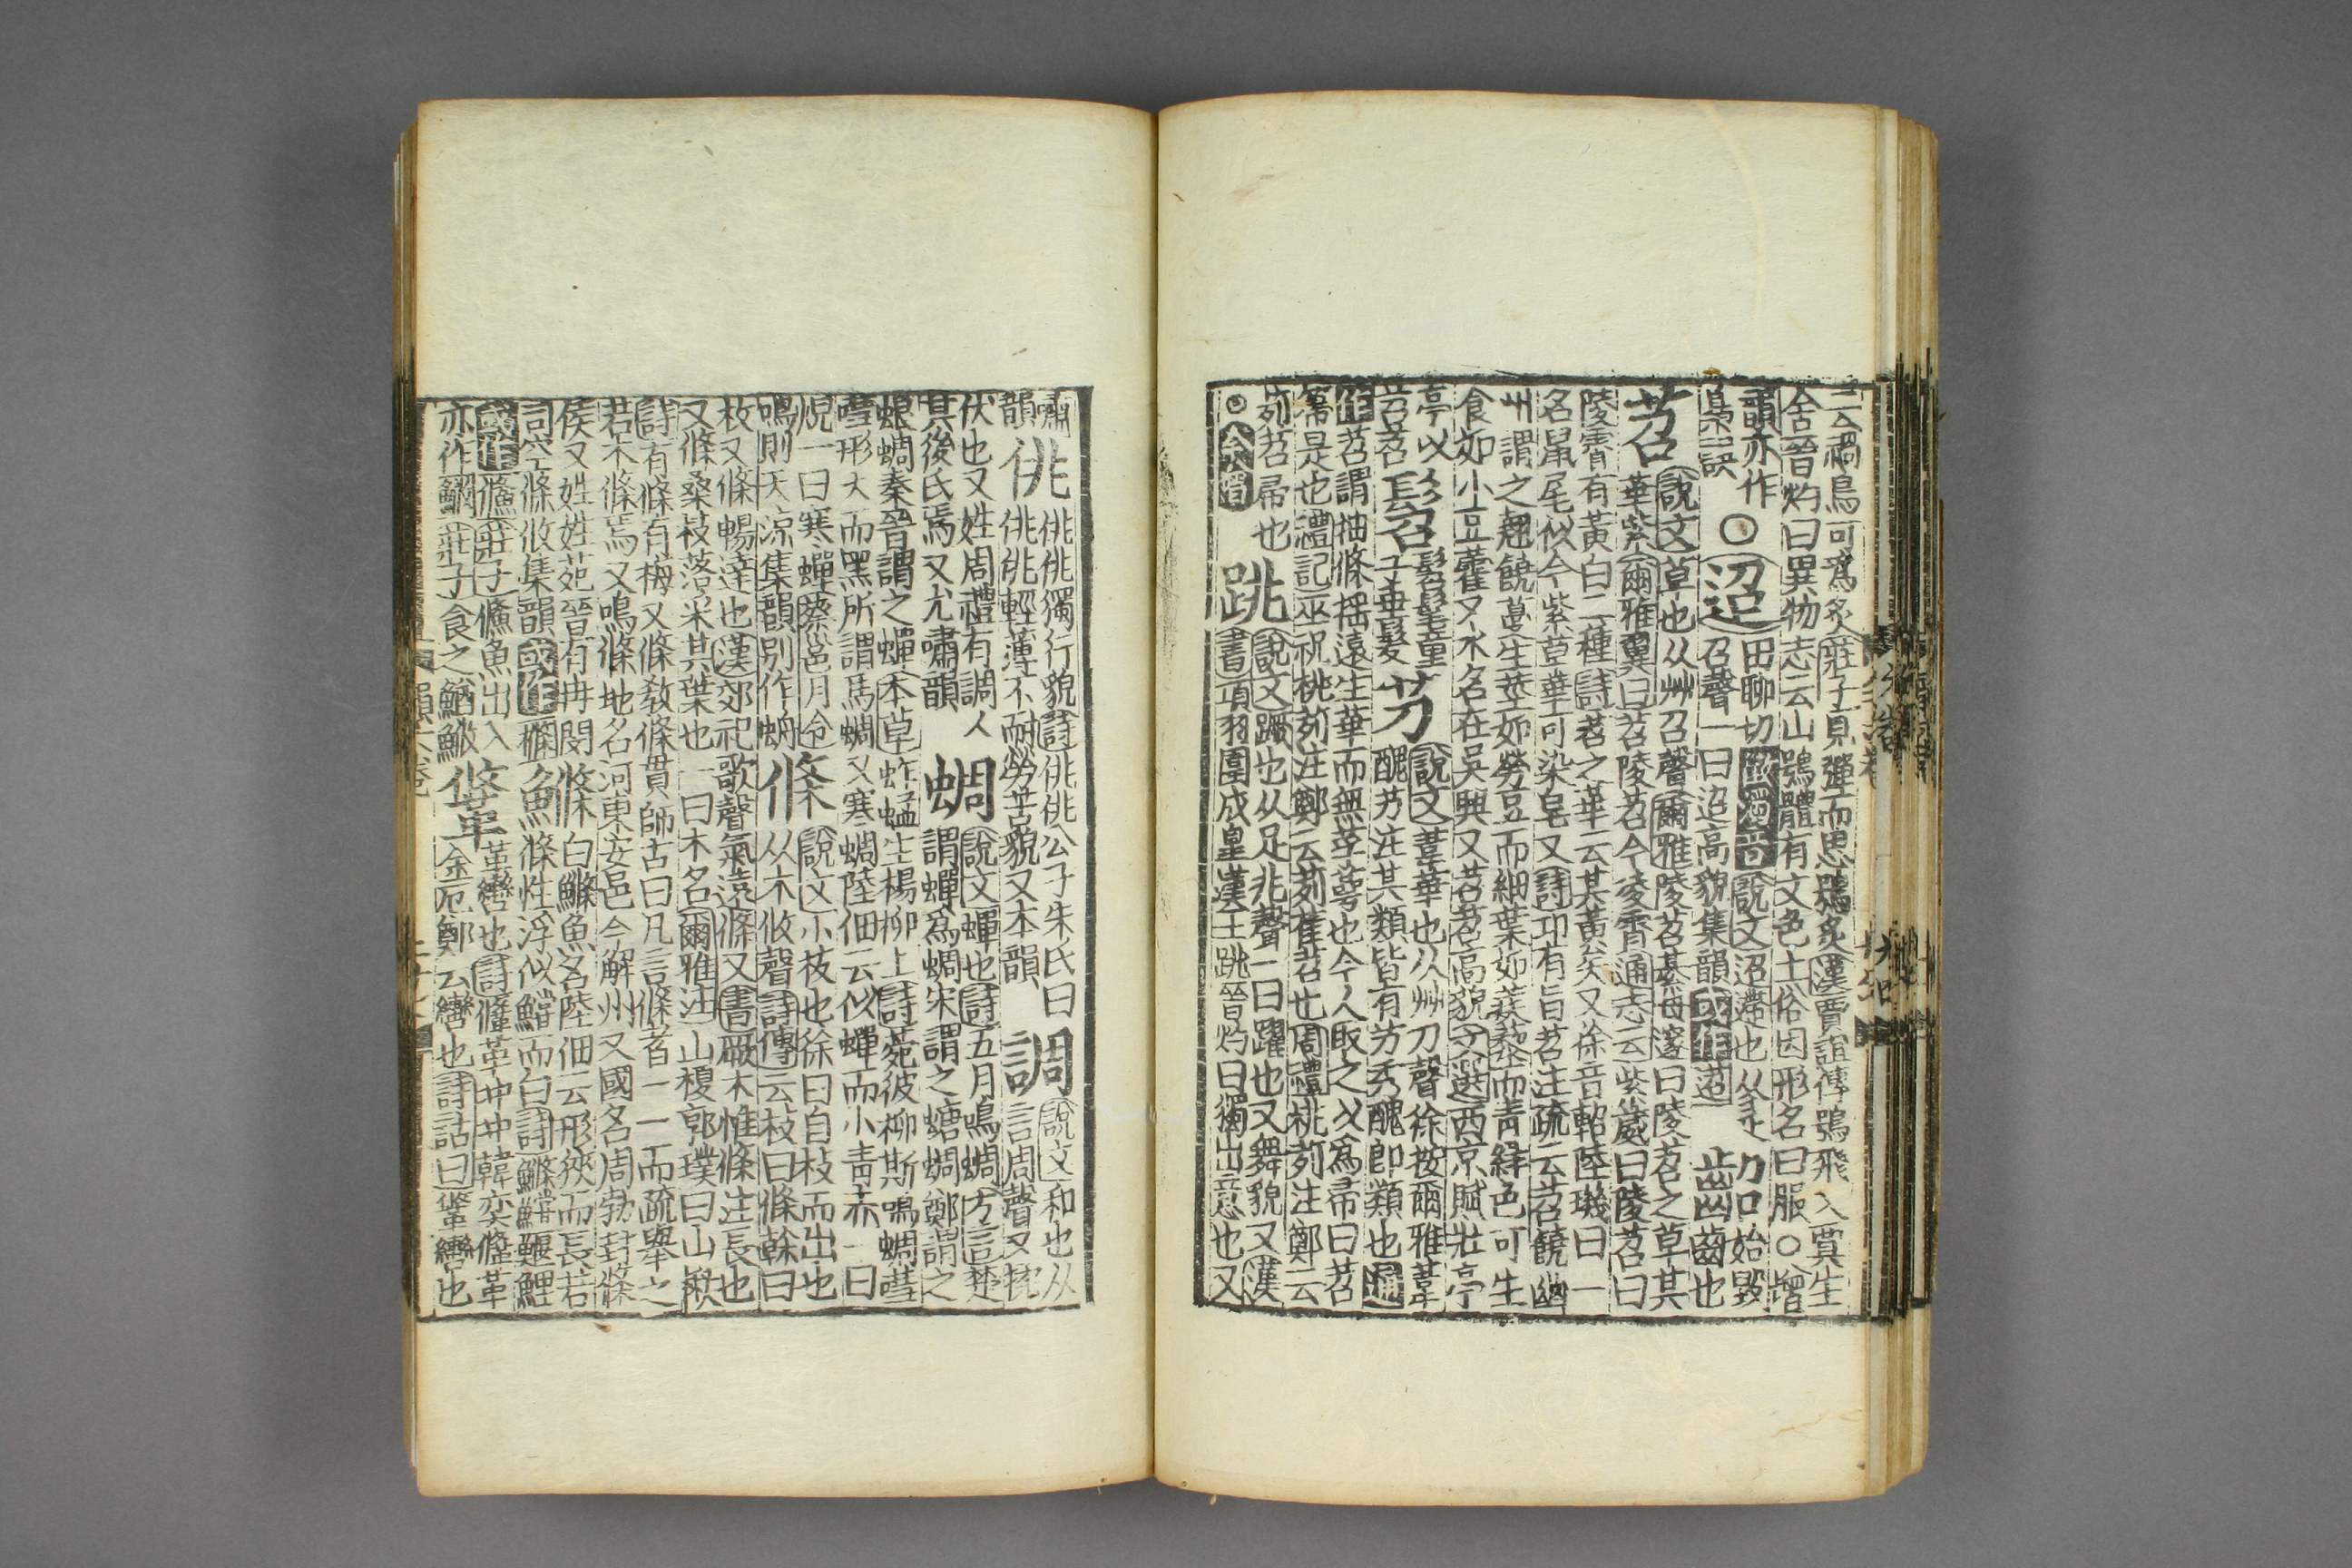 云禍鳥可爲炙莊子見彈而思鴞炙漢賈誼傳鴞飛入賈生
舍晉灼曰異物志云山鴞體有文色土俗因形名曰服○增
韻亦作
梟誤
○迢
田聊切
說文迢遰也从辵
召聲一曰迢高貌集韻或作
齠
始毀
齒也
苕
說文草也从艸召聲爾雅陵苕
華紫爾雅翼曰苕陵苕今凌霄通志云紫葳曰陵苕曰
陵霄有黃白二種詩苕之華云其黃矣又徐音韶陸璣曰一
名鼠尾似今紫草華可染皂又詩卭有旨苕注疏云苕饒幽
州謂之翹饒蔓生莖如勞豆而細葉如蒺蔾而青綠色可生
食如小豆藿又水名在吳興又苕苕高貌文選西京賦壯亭
亭以
苕苕
髫
髫髦童
子垂髮
芀
說文葦華也从艸刀聲徐按爾雅葦
醜芀注其類皆有芀秀醜即類也通
作苕謂抽條搖遠生華而無莩萼也今人取之以爲帚曰苕
帚是也禮記巫祝桃茢注鄭云茢萑苕也周禮桃茢注鄭云
茢苕帚也
跳
說文蹶也从足兆聲一曰躍也又舞貌又漢
書項羽圍成皐漢王跳晉灼曰獨出意也又
嘯
韻
佻
佻佻獨行貌詩佻佻公子朱氏曰
佻佻輕薄不耐勞苦貌又本韻
調
說文和也从
言周聲又
伏也又姓周禮有調人
其後氏焉又尤嘯韻
蜩
說文蟬也詩五月鳴蜩方言楚
謂蟬爲蜩宋謂之螗蜩鄭謂之
蜋蜩秦晉謂之蟬本草蚱蟬生楊柳上詩菀彼柳斯鳴蜩嘒
嘒形大而黑所謂馬蜩又寒蜩陸佃云似蟬而小青赤一曰
蜺一曰寒蟬蔡邕月令
鳴則天凉集韻別作蜩
條
說文小枝也徐曰自枝而出也
从木攸聲詩傳云枝曰條榦曰
枚又條暢達也漢郊祀歌聲氣遠條又書厥木惟條注長也
又條桑枝落采其葉也一曰木名爾雅注山榎郭璞曰山楸
詩有條有梅又條教條貫師古曰凡言條者一一而疏舉之
若木條焉又鳴條地名河東安邑今解州又國名周勃封條
侯又姓
鰷
白鰷魚名陸佃云形狹而長若
條性浮似鱨而白詩鰷鱨鰋鯉
莊子鯈魚出入
莊子食之鰌鰷
鞗
革轡也詩鞗革沖沖韓奕鞗革
金厄鄭云轡也詩詁曰鞗轡也